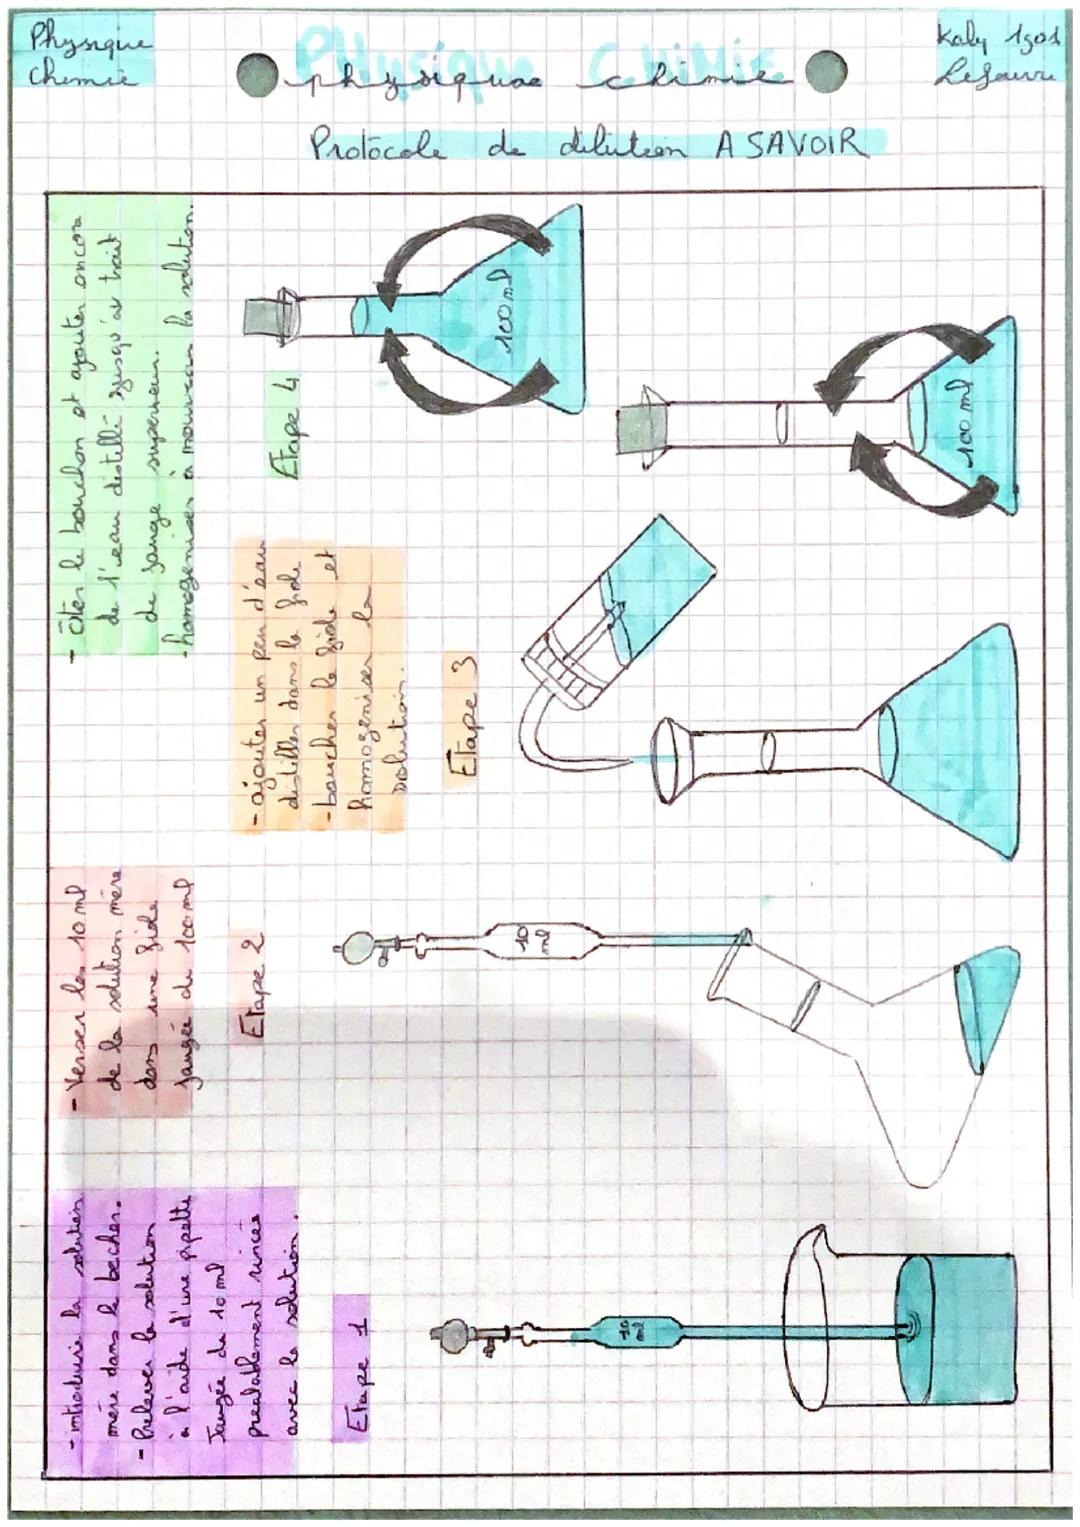 Physique
Chimie
PHysique CHiMie
physique chimie
Kaly 1gos
Lefauvre
Protocole de dilution A SAVOIR
- introduire la solution
mère dans le becher.
- Prelever la solution
à l'aide d'une pipette
Jaugée de 10 ml
prealablement rincée
avec la solution.
Etape 1
10
ml
- Verser les 10 ml
de la solution mère
dans une fiole
jaugée de 100 ml
Etape 2
10
ml
- ajouter un peu d'eau
distillée dans la fiole
- boucher la fiole et
homogeniser la
solution.
Etape 3
100 ml
- ôter le bouchon et ajouter encore
de l'eau distillé jusqu'at trait
de jauge superieur.
- homogeniser à nouveau la solution.
Etape 4
100 ml